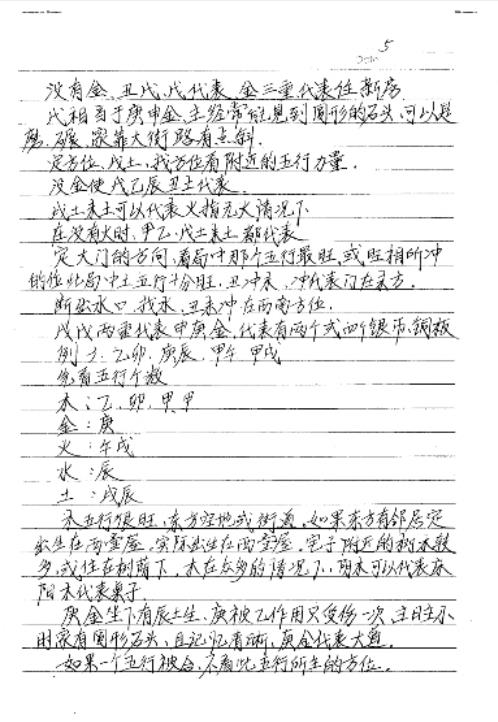 5
没有金、丑戊、戊代表金三重代表住新房.
戊相当于庚申金、主经常能见到圆形的石头、可以是
磨、碾、家靠大街路有点斜.
定方位、戊土、找方位看附近的五行力量.
没金使戊乙辰丑土代表.
戊土未土可以代表火指无火情况下
在没有火时、甲乙、戊土未土都代表
定大门的方向、看局中那个五行最旺、或旺相所冲
的位此局中土五行十分旺、丑冲未、冲代表门在未方.
断出水口、找水、丑未冲在西南方位.
戊戊两重代表申庚金、代表有两个或四个银币、铜板
例3、乙卯、庚辰、甲午 甲戌
先看五行个数
木：乙、卯、甲、甲
金：庚
火：午戌
水：辰
土：戌辰
木五行很旺、东方空地或街道、如果东方有邻居定
出生在西屋、实际出生在西屋、宅子附近的树木较
多、或住在树荫下、木在太多的情况下、两木可以代表床
阳木代表桌子.
庚金生下有辰土生、庚被乙作用只受伤一次、主日主小
时家有圆形石头、且记忆清晰、庚金代表大道.
如果一个五行被合、不看此五行所主的方位.